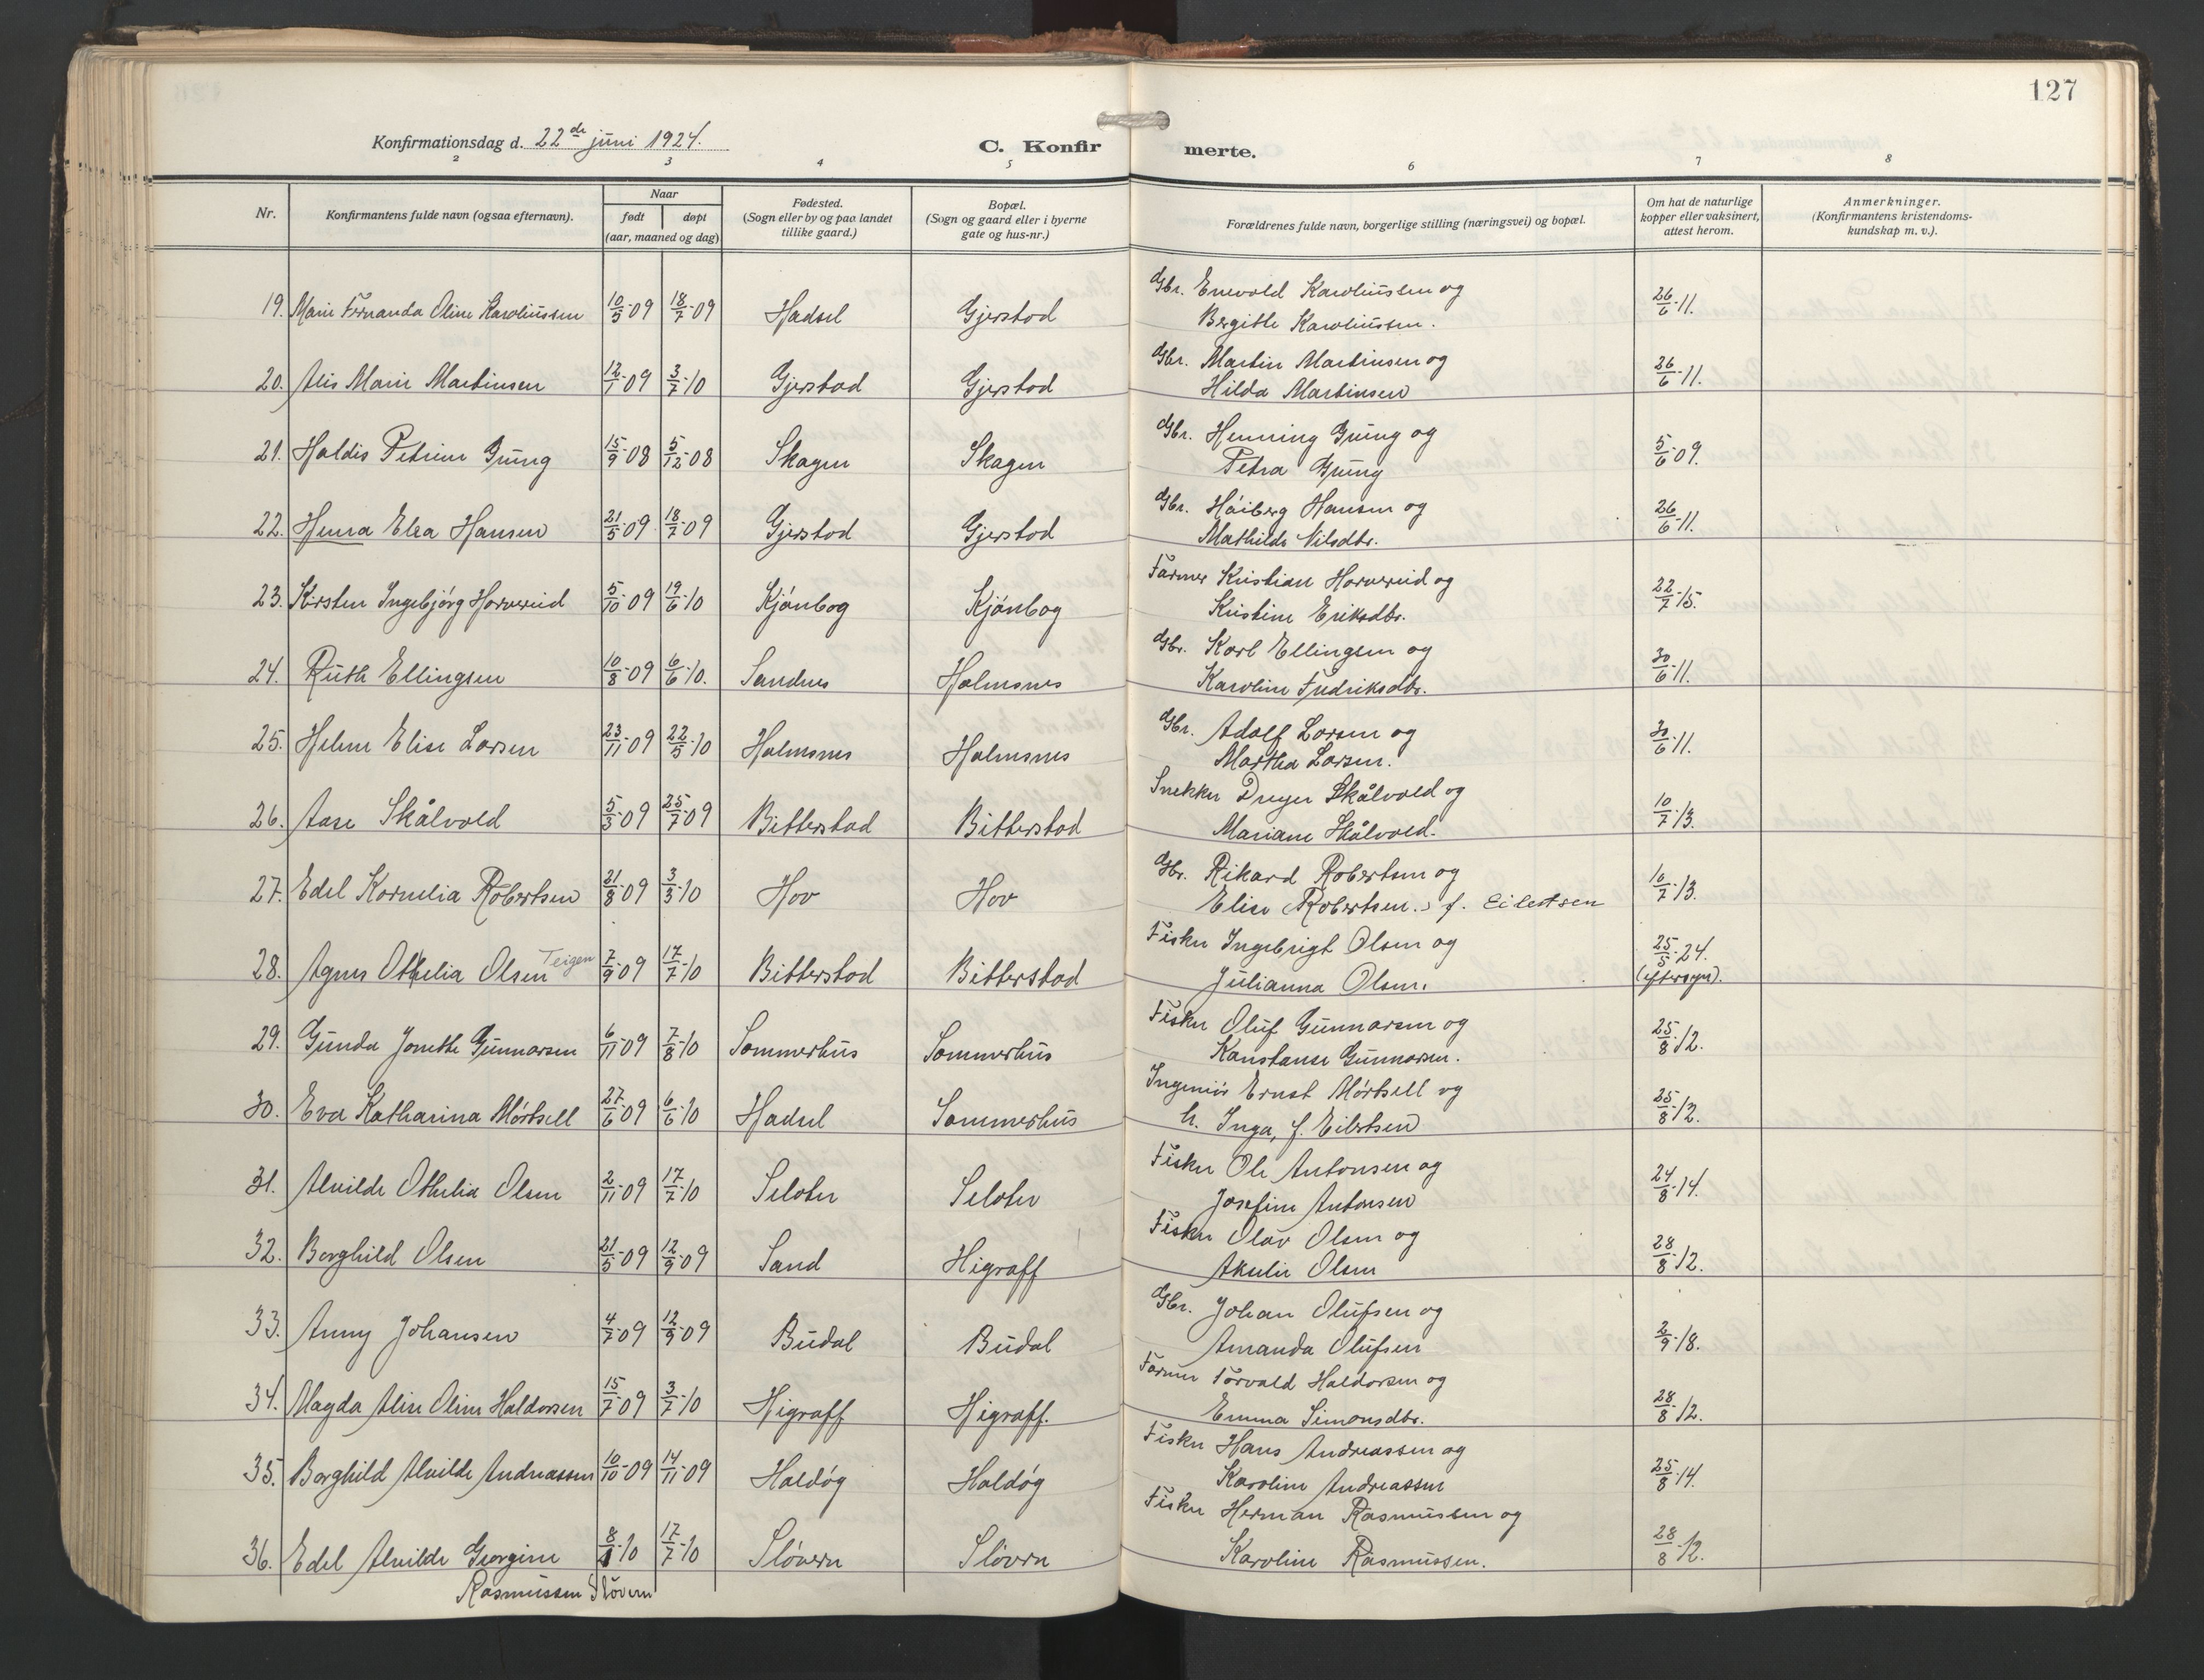 127
Konfirmationsdag d. 22de juni 1924.
C. Konfirmerte.
2 3 4 5 6 7 8
Nr. | Konfirmantens fulde navn (ogsaa efternavn). | Naar født | døpt (aar, maaned og dag) | Fødested. (Sogn eller by og paa landet tillike gaard.) | Bopæl. (Sogn og gaard eller i byerne gate og hus-nr.) | Forældrenes fulde navn, borgerlige stilling (næringsvei) og bopæl. | Om hat de naturlige kopper eller vaksinert, attest herom. | Anmerkninger. (Konfirmantens kristendoms-kundskap m. v.).
19. Marie Fernanda Oline Karoliussen 10/5-09 18/7-09 Hadsel Gjerstad Gbr. Enevold Karoliussen og Bergitte Karoliussen. 26/6-11.
20. Alis Marie Martinsen 12/1-09 3/7-10 Gjerstad Gjerstad Gbr. Martin Martinsen og Hilda Martinsen 26/6-11.
21. Haldis Petrine Grüng 15/9-08 5/12-08 Skagen Skagen Gbr. Henning Grüng og Petra Grüng 5/6-09.
22. Henra Elea Hansen 21/5-09 18/7-09 Gjerstad Gjerstad Gbr. Høiberg Hansen og Mathilde Nilsdtr. 26/6-11.
23. Kirsten Ingebjørg Horvereid 5/10-09 19/6-10 Kjønbog Kjønbog Farmer Kristian Horvereid og Kristine Eriksdtr. 22/7-15.
24. Ruth Ellingsen 10/8-09 6/6-10. Sandnes Holmsnes Gbr. Karl Ellingsen og Karoline Fredriksdtr. 30/6-11.
25. Helene Elise Larsen 23/11-09 22/5-10 Holmsnes Holmsnes Gbr. Adolf Larsen og Martha Larsen. 30/6-11.
26. Aase Skålvold 5/3-09 25/7-09 Bitterstad Bitterstad Snekker Dreyer Skålvold og Mariane Skålvold. 10/7-13.
27. Edel Kornelia Robertsen 21/8-09 3/3-10 Hov Hov Gbr. Rikard Robertsen og Elise (Robertsen.) f. Eilertsen 10/7-13.
28. Agnes Othelia Olsen Teigen 7/9-09 17/7-10 Bitterstad Bitterstad Fisker Ingebrigt Olsen og Julianna Olsen. 25/5-24. (eftersyn).
29. Gunda Jonette Gunnarsen 6/11-09 7/8-10 Sommerhus Sommerhus Fisker Oluf Gunnarsen og Konstanse Gunnarsen. 25/8-12.
30. Eva Katharina Mørtsell 27/6-09 6/6-10 Hadsel Sommerhus Ingeniør Ernst Mørtsell og h. Inga, f. Eilertsen 25/8-12.
31. Alvilde Othelia Olsen 2/11-09 17/7-10 Selater Selater Fisker Ole Antonsen og Josefine Antonsen 24/8-14.
32. Borghild Olsen 21/5-09 12/9-09 Sand Higraff Fisker Olav Olsen og Akselie Olsen 28/8-12.
33. Anny Johansen 4/7-09 12/9-09 Budal Budal Gbr. Johan Olufsen og Amanda Olufsen 2/9-18.
34. Magda Alise Oline Haldorsen 15/7-09 3/7-10 Higraff Higraff. Farmer Torvald Haldorsen og Emma Simonsdtr. 28/8-12.
35. Borghild Alvilde Andreassen 10/10-09 14/11-09 Haldøg Haldøg Fisker Hans Andreassen og Karoline Andreassen 25/8-14.
36. Edel Alvilde Georgine 8/1-10 17/7-10 Sløveren Sløvern Fisker Herman Rasmussen og Karoline Rasmussen. 28/8-12.
Rasmussen Sløvern